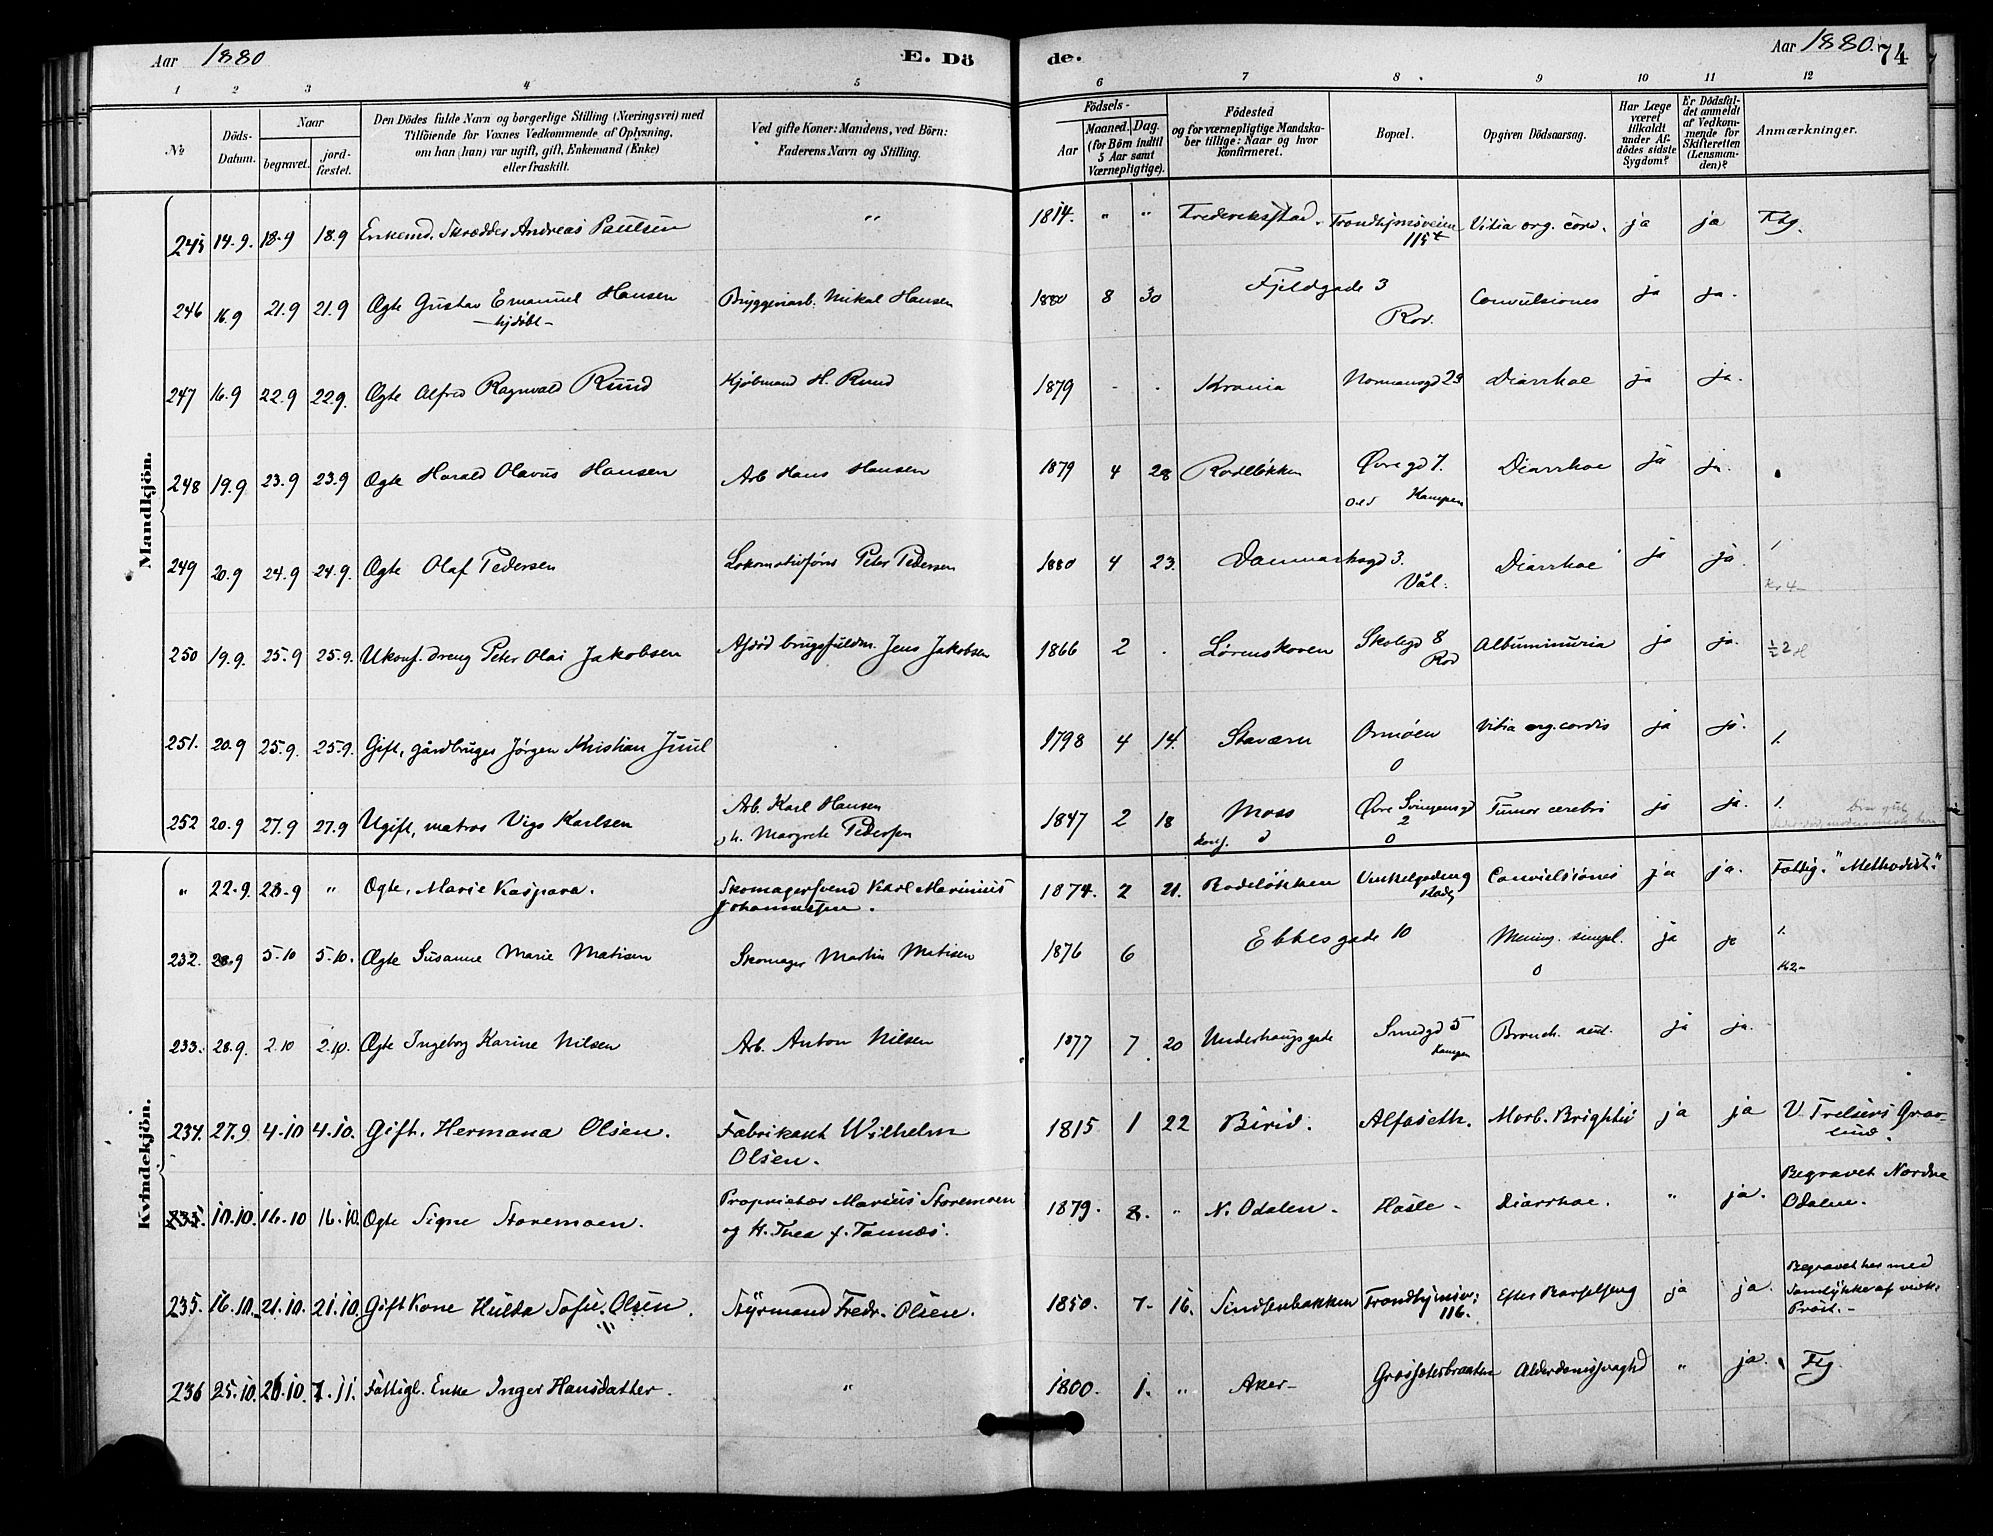 Aar 1880
E. Dö
de.
Aar 1880. 74
1 2 3 4 5 6 7 8 9 10 11 12
No
Döds-
Datum.
Naar
begravet.
jord-
fæstet.
Den Dödes fulde Navn og borgerlige Stilling (Næringsvei) med
Tilföiende for Voxnes Vedkommende af Oplysning,
om han (hun) var ugift, gift, Enkemand (Enke)
eller fraskilt.
Ved gifte Koner: Mandens, ved Börn:
Faderens Navn og Stilling.
Födsels-
Aar
Maaned. Dag.
(for Börn indtil
5 Aar samt
Værnepligtige).
Födested
og for værnepligtige Mandska-
ber tillige: Naar og hvor
konfirmeret.
Bopæl.
Opgiven Dödsaarsag.
Har Læge
været
tilkaldt
under Af-
dödes sidste
Sygdom?
Er Dödsfal-
det anmeldt
af Vedkom-
mende for
Skifteretten
(Lensman-
den)?
Anmærkninger.
Mandkjön.
245 14.9. 18.9 18.9 Enkemd. Skrædder Andreas Paulsen " 1814. " " Frederikstad. Trondhjemsveien 115 Vitia org. cord. ja ja Ftg.
246 16.9 21.9 21.9 Ægte Gustav Emanuel Hansen Bryggeriarb. Mikal Hansen 1880 8 30 Fjeldgade 3 Convulsiones ja ja.
-hjdöbt- Rod.
247 16.9 22.9 22.9. Ægte Alfred Ragnvald Ruud Kjöbmand H. Ruud 1879 . . Krania Normansgd 23 Diarrhoe ja ja.
248 19.9 23.9 23.9 Ægte Harald Olavus Hansen Arb Hans Hansen 1879 4 28 Rodeløkken Øvregd 7. Diarrhoe ja ja.
Kampen
249 20.9 24.9 24.9. Ægte Olaf Pedersen Lokomotivförer Peter Pedersen 1880 4 23. Danmarksgd 3. Diarrhoe ja ja. 1.
Vål. Kr 4-
250 19.9. 25.9 25.9. Ukonf. dreng Peter Olai Jakobsen Afdød brugsfuldm. Jens Jakobsen 1866 2 . Lørenskoven Skolegd 8 Albuminuria ja ja. ½ 2
Rod
251. 20.9 25.9. 25.9. Gift, gårdbruger Jørgen Kristian Juul 1798 4 14. Staværn Ormöen Vitia org. cordis ja ja. 1.
0
252 20.9 27.9 27.9 Ugift, matros Vigo Karlsen Arb. Karl Hansen 1847 2 18 Moss Øvre Svingensgd 2 Tumor cerebri ja ja. 1.
h. Margrete Pedersen konf. d 0
Kvindekjön.
" 22.9. 28.9 " Ægte, Marie Kaspara. Skomagersvend Karl Marinius 1874. 2 21. Rodeløkken Vinkelgaden 9 Convulsiones ja ja. Fattig. "Methodist."
Johannessen. Rodl
232. 28.9 5.10 5.10. Ægte Susanne Marie Matisen Skomager Martin Matisen 1876 6 Ebbesgade 10 Mening. simpl. ja ja 1.
0 K2.-
233. 28.9. 2.10 2.10. Ægte Ingeborg Karine Nilsen Arb. Anton Nilsen 1877 7. 20 Underhaugsgate Smedgd 5 Bronch. aut. ja ja.
Kampen
234. 27.9 4.10 4.10. Gift. Hermana Olsen. Fabrikant Wilhelm 1815 1 22 Birid. Alfaseth. Morb. Brightii ja ja V. Frelsers Grav-
Olsen. lund.
235. 10.10. 16.10 16.10. Ægte Signe Storemoen. Proprietær Marius Storemoen 1879. 8. " N. Odalen. Hasle - Diarrhoe. " ja. Begravet Nordre
og H. Thea f. Tannæs. Odalen.
235. 16.10. 21.10. 21.10. Gift Kone Hulda Sofie Olsen. Styrmand Fredr. Olsen. 1850. 7. 16. Sindsenbakken Trondhjemsv. 116. Efter Barselseng ja ja. Begravet her med
Samtykke af vedk.
Præst.-
236 25.10. 26.10. 7.11. Fattigl. Enke Inger Hansdatter. " 1800. 1. " Aker- Alderdomssvaghd " ja. Ftg.